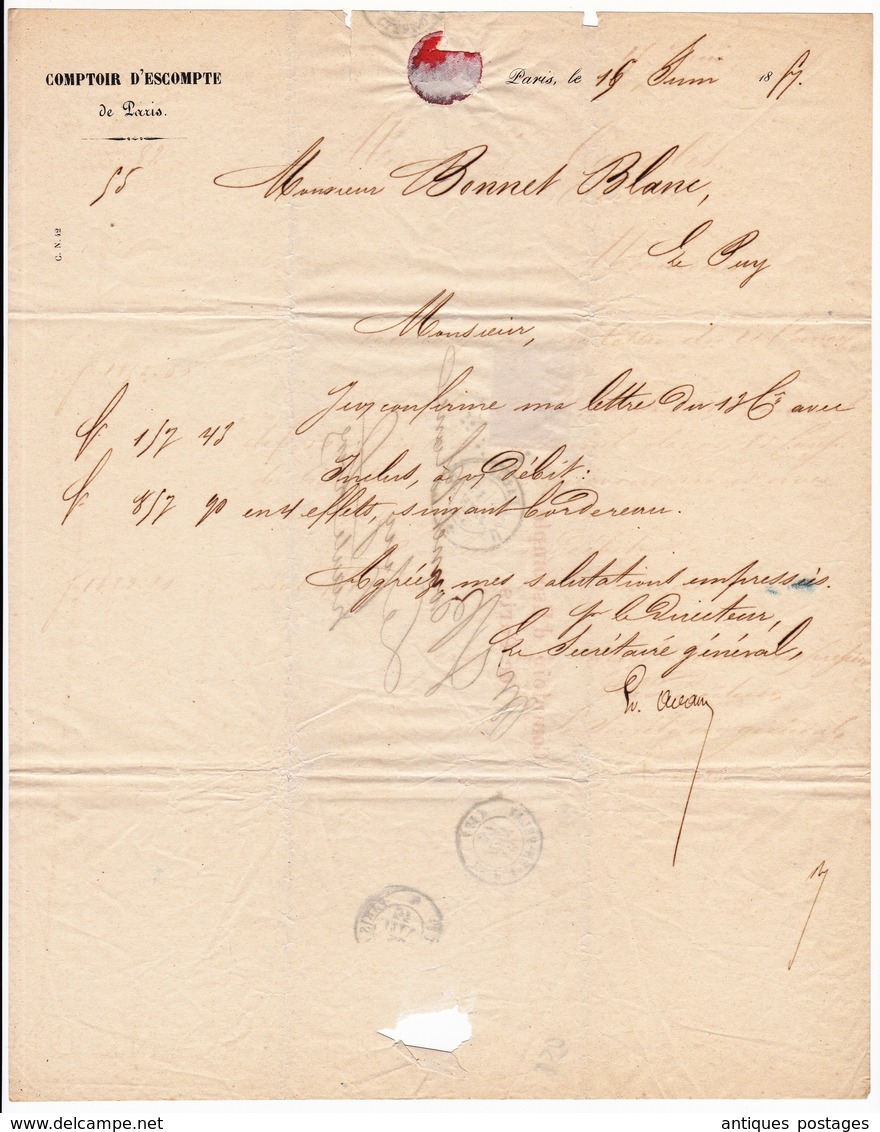 COMPTOIR D'ESCOMPTE
de Paris.
Paris, le 16 Juin 1857.
55 Monsieur Bonnet Blanc,
Le Puy
C. N. 42
Monsieur,
Je vs confirme ma lettre du 13 Ct avec
F 157 43
Inclus, à v/ débit:
F 857 90 en 4 effets, suivant bordereau.
Agréez, mes salutations empressées.
p le Directeur,
Le Secrétaire général,
antiques postages